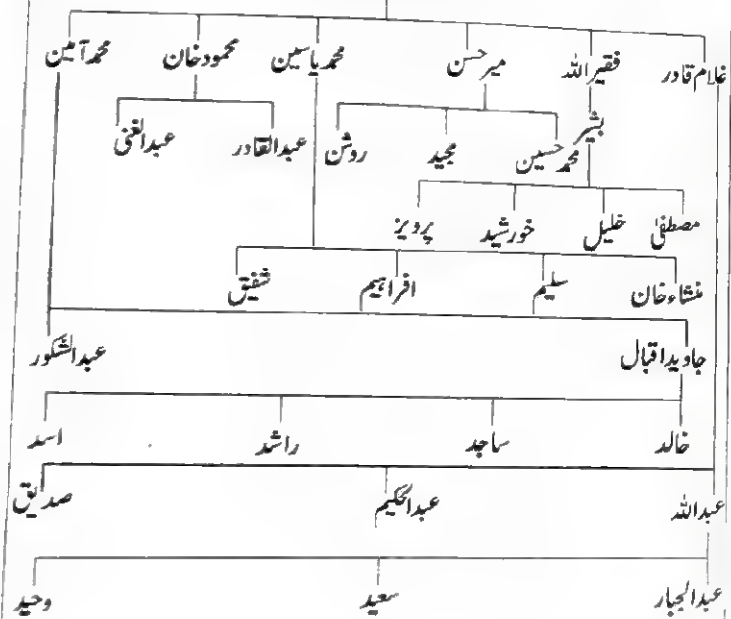 غلام قادر فقیر اللہ میر حسن محمد یاسین محمود خان محمد آمین
بشیر
محمد حسین مجید روشن عبدالقادر عبدالغنی
مصطفیٰ خلیل خورشید پرویز
منشاء خان سلیم افراہیم شفیق
جاوید اقبال عبدالشکور
خالد ساجد راشد اسد
عبداللہ عبدالحکیم صدیق
عبدالجبار سعید وحید